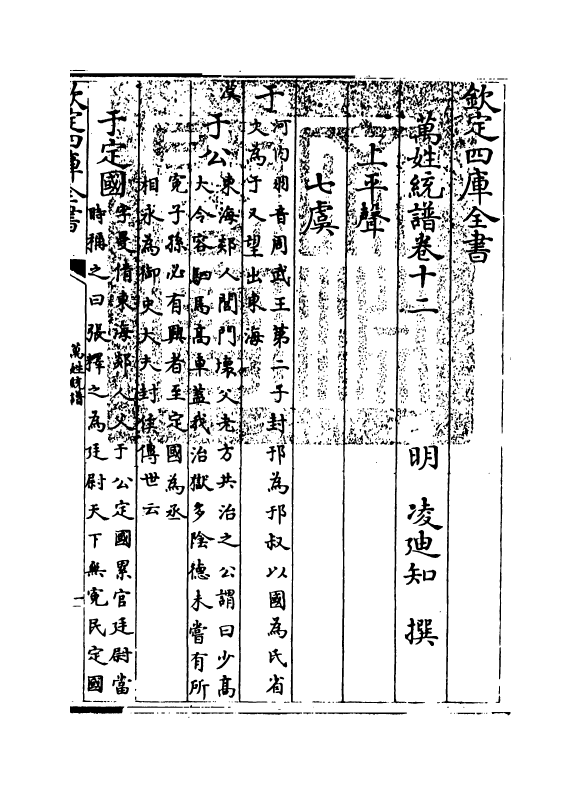 欽定四庫全書
萬姓統譜卷十二
明 凌迪知 撰
上平聲
七虞
于
河内羽音周武王第二子封邘為邘叔以國為氏省
文為于又望出東海
漢
于公
東海郯人閭門壞父老方共治之公謂曰少高
大令容駟馬高車蓋我治獄多陰德未嘗有所
寃子孫必有興者至定國為丞
相永為御史大夫封侯傳世云
于定國
字曼倩東海郯人父于公定國累官廷尉當
時稱之曰張釋之為廷尉天下無寃民定國
欽定四庫全書
萬姓統譜
一